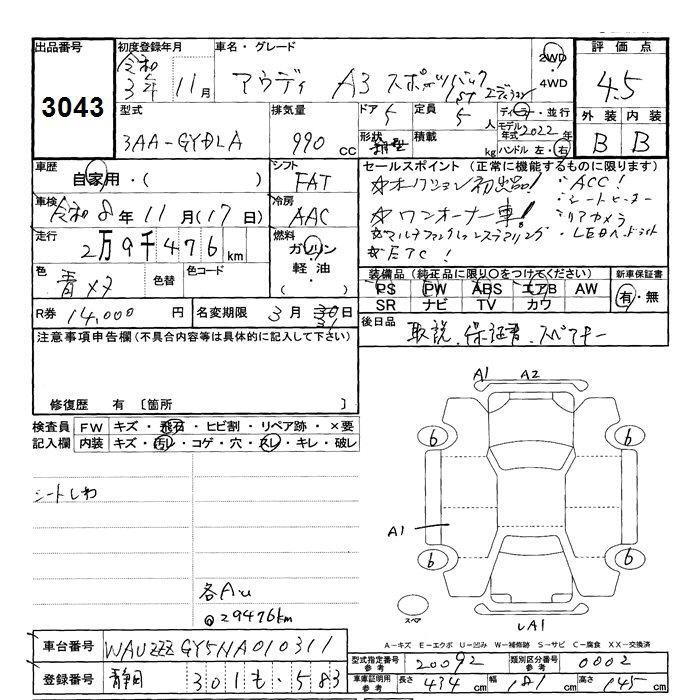 出品番号
3043
初度登録年月
令和3年 11月
車名・グレード
アウディ A3 スポーツバック
1ST エディション
2WD
・
4WD
評価点
4.5
外装 内装
B B
型式
3AA-GYDLA
排気量
990 cc
ドア
5
定員
5 人
ディーラー・並行
モデル年式 2022年
形状
積載 kg
ハンドル 左・右
車歴
自家用・( )
シフト
FAT
セールスポイント (正常に機能するものに限ります)
☆オークション初出品! ・ACC!
・シートヒーター
☆ワンオーナー車! ・リアカメラ
☆マルチファンクションステアリング ・LEDヘッドライト
☆ETC!
車検
令和8年11月(17日)
冷房
AAC
走行
2万9千476km
燃料
ガソリン
軽油・
( )
色
青メタ
色替
色コード
装備品 (純正品に限り○をつけてください)
PS PW ABS エアB AW
SR ナビ TV カワ
新車保証書
有・無
R券 14,000 円
名変期限 3月 30日
31
後日品
取説、保証書、スペアキー
注意事項申告欄 (不具合内容等は具体的に記入して下さい)
修復歴 有 〔箇所 〕
検査員記入欄
FW キズ・飛石・ヒビ割・リペア跡・×要
内装 キズ・汚レ・コゲ・穴・スレ・キレ・破レ
シートしわ
各Aﾑ
@29476km
A1 A2
6 6
A1
6 6
スペア
A1
A-キズ E-エクボ U-凹み W-補修跡 S-サビ C-腐食 XX-交換済
車台番号
WAUZZZGY5NA010311
登録番号
静岡 301 も・583
型式指定番号 参考
20092
類別区分番号 参考
0002
車庫証明用 参考
長さ 434 cm
幅 181 cm
高さ 145 cm